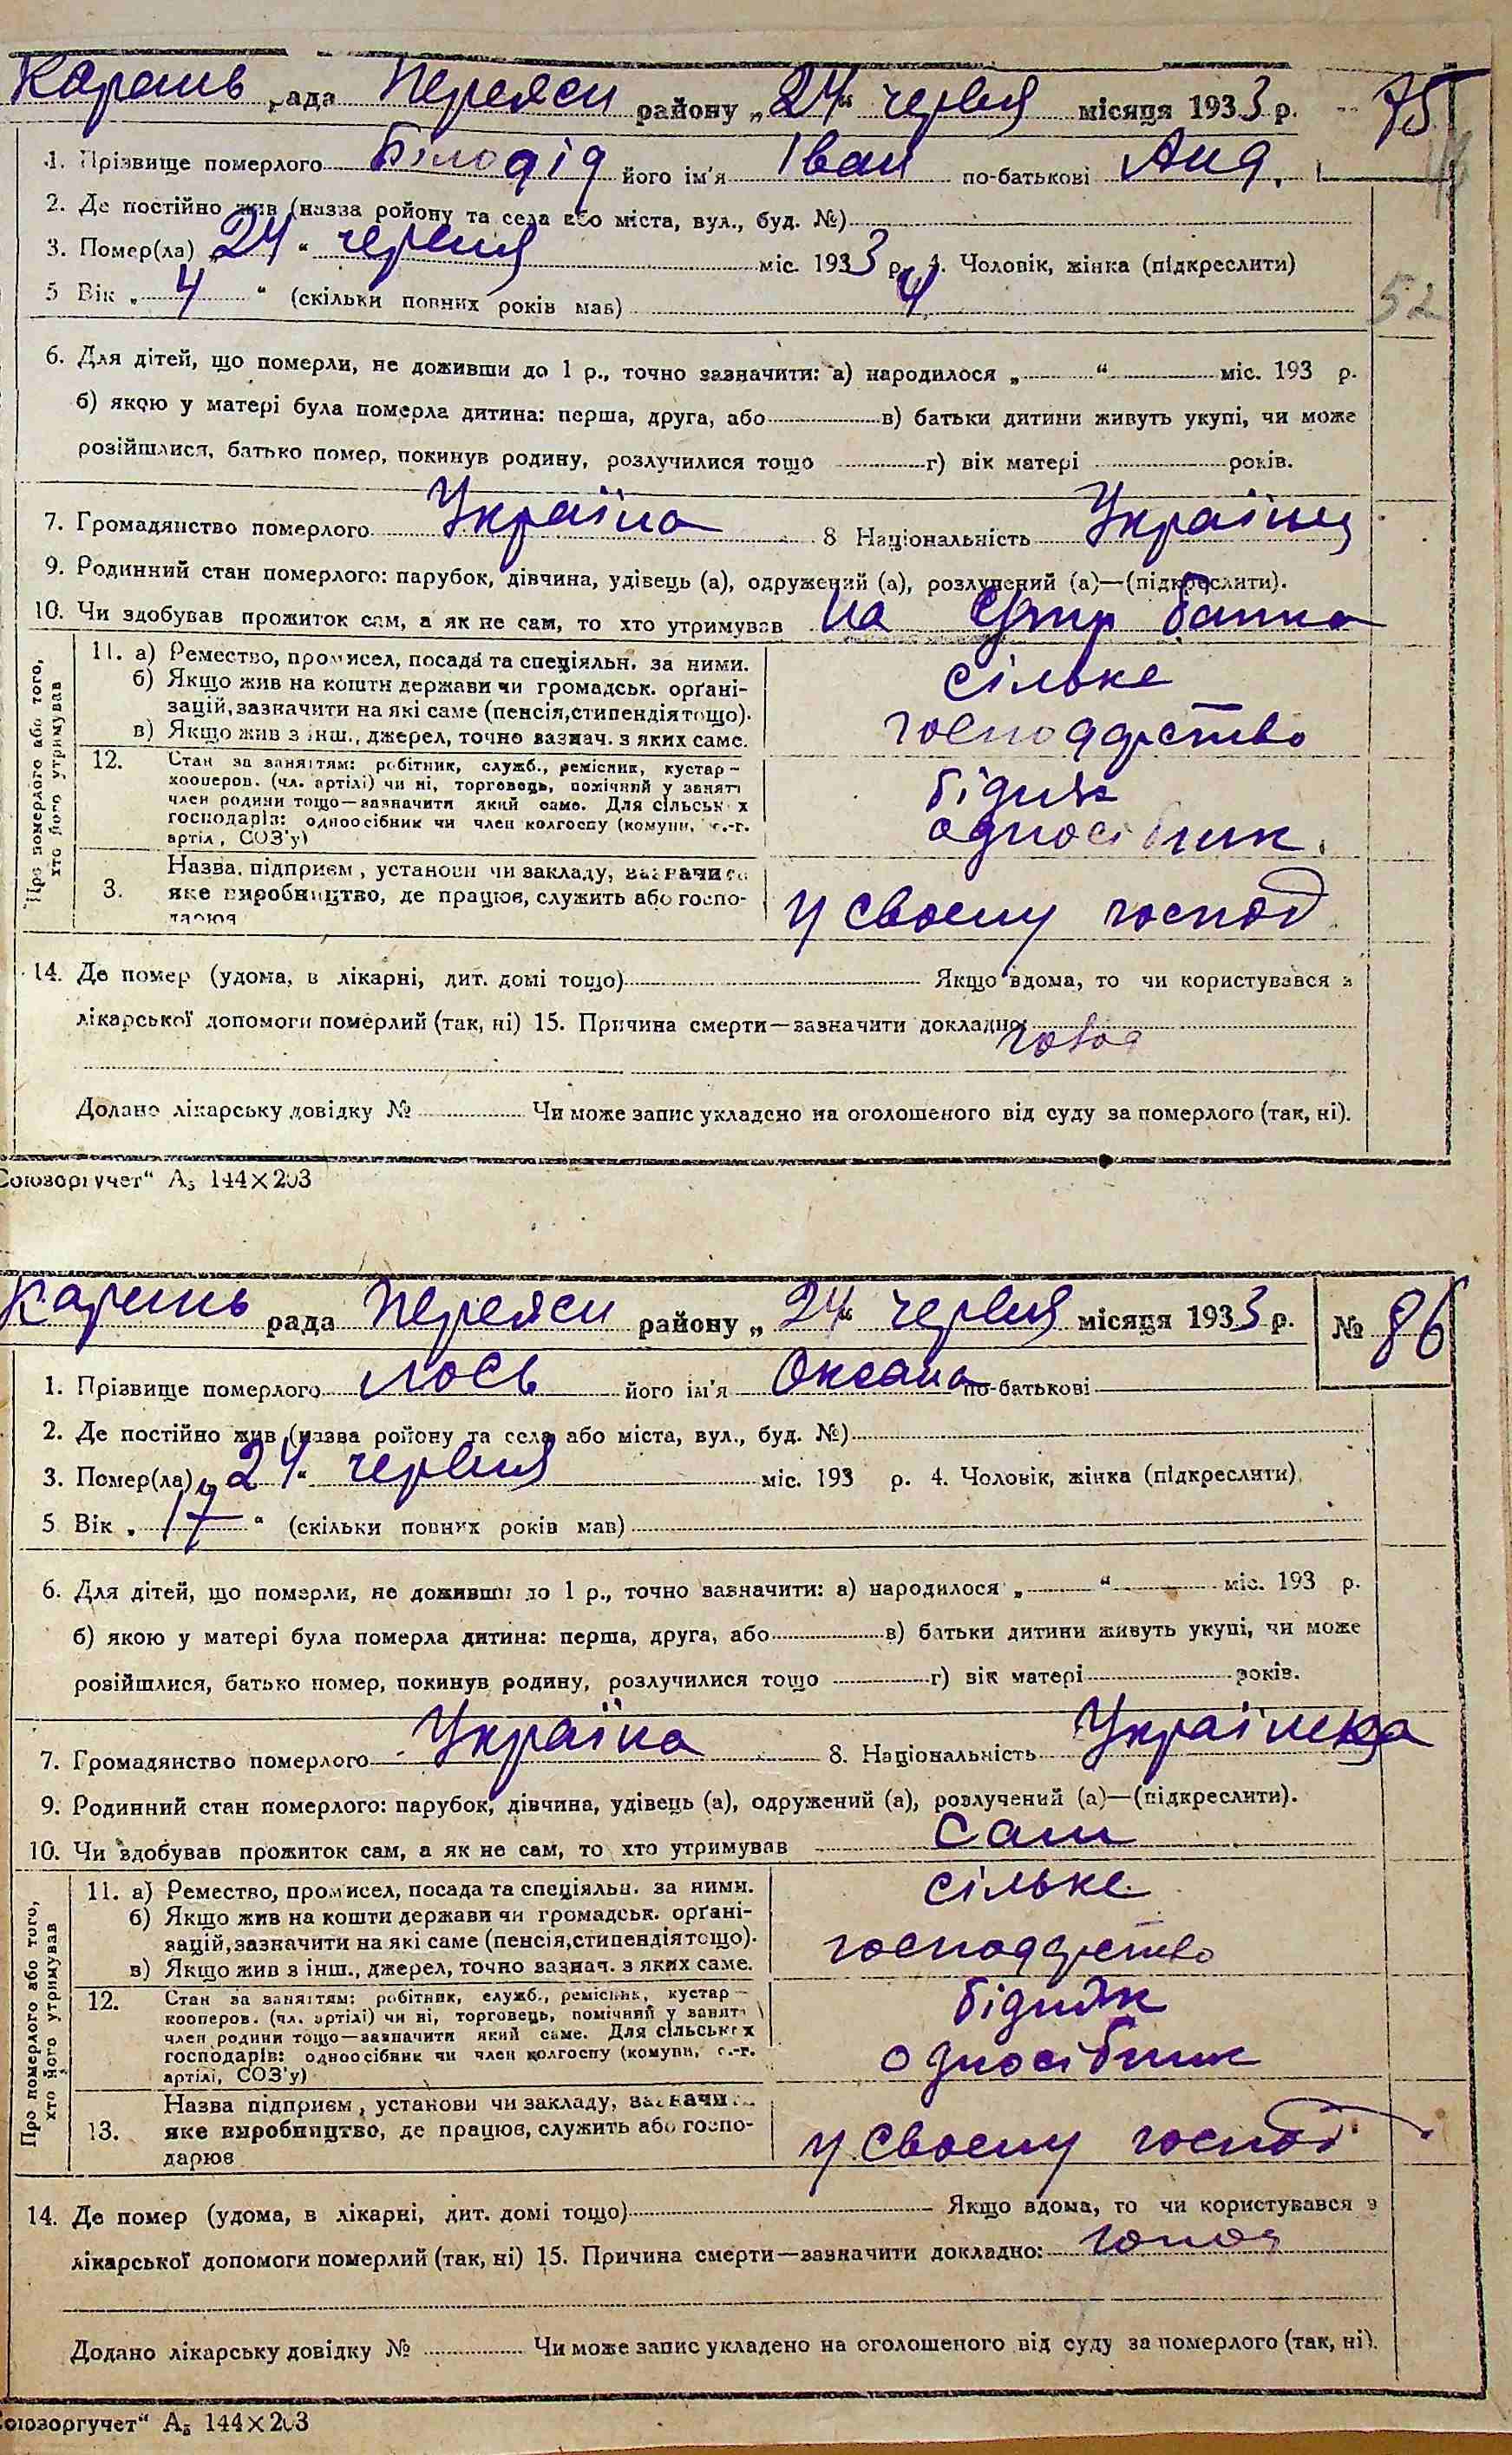 Карань рада Переясл району „24“ червня місяця 1933 р. 75
1. Прізвище померлого Білодід його ім'я Іван по-батькові Анд.
2. Де постійно жив (назва ройону та села або міста, вул., буд. №)
3. Помер(ла) „24“ червня міс. 1933 р. 4. Чоловік, жінка (підкреслити)
5 Вік „4“ (скільки повних років мав) 4
52
6. Для дітей, що померли, не доживши до 1 р., точно зазначити: а) народилося „ “ міс. 193 р.
б) якою у матері була померла дитина: перша, друга, або в) батьки дитини живуть укупі, чи може
розійшлися, батько помер, покинув родину, розлучилися тощо г) вік матері років.
7. Громадянство померлого Україна 8 Національність Українц
9. Родинний стан померлого: парубок, дівчина, удівець (а), одружений (а), розлучений (а)—(підкреслити).
10. Чи здобував прожиток сам, а як не сам, то хто утримував на утр батька
Про померлого або того, хто його утримував
11. а) Ремество, промисел, посада та спеціяльн. за ними.
б) Якщо жив на кошти держави чи громадськ. орґані-
зацій, зазначити на які саме (пенсія, стипендія тощо).
в) Якщо жив з інш., джерел, точно зазнач. з яких саме.
сільке
господдрство
12. Стан за заняттям: робітник, служб., ремісник, кустар –
кооперов. (чл. артілі) чи ні, торговець, помічний у занятт
член родини тощо—зазначити який саме. Для сільськ х
господарів: одноосібник чи член колгоспу (комуни, с.-г.
артіл, СОЗ'у)
бідняк
односібник.
3. Назва. підприєм, установи чи закладу, зазначи
яке виробництво, де працює, служить або госпо-
дарює
у своєму господ
14. Де помер (удома, в лікарні, дит. домі тощо) Якщо вдома, то чи користувався з
лікарської допомоги померлий (так, ні) 15. Причина смерти—зазначити докладно:
голод
Додано лікарську довідку № Чи може запис укладено на оголошеного від суду за померлого (так, ні).
Союзоргучет“ А₅ 144×203
Карань рада Переясл району „24“ червня місяця 1933 р. № 86
1. Прізвище померлого Лось його ім'я Оксана по-батькові
2. Де постійно жив (назва ройону та села або міста, вул., буд. №)
3. Помер(ла) „24“ червня міс. 193 р. 4. Чоловік, жінка (підкреслити)
5 Вік „17“ (скільки повних років мав)
6. Для дітей, що померли, не доживши до 1 р., точно зазначити: а) народилося „ “ міс. 193 р.
б) якою у матері була померла дитина: перша, друга, або в) батьки дитини живуть укупі, чи може
розійшлися, батько помер, покинув родину, розлучилися тощо г) вік матері років.
7. Громадянство померлого Україна 8. Національність Українка
9. Родинний стан померлого: парубок, дівчина, удівець (а), одружений (а), розлучений (а)—(підкреслити).
10. Чи здобував прожиток сам, а як не сам, то хто утримував сам
Про померлого або того, хто його утримував
11. а) Ремество, промисел, посада та спеціяльн. за ними.
б) Якщо жив на кошти держави чи громадськ. орґані-
зацій, зазначити на які саме (пенсія, стипендія тощо).
в) Якщо жив з інш., джерел, точно зазнач. з яких саме.
сільке
господдрство
12. Стан за заняттям: робітник, служб., ремісник, кустар –
кооперов. (чл. артілі) чи ні, торговець, помічний у занятт
член родини тощо—зазначити який саме. Для сільськ х
господарів: одноосібник чи член колгоспу (комуни, с.-г.
артілі, СОЗ'у)
бідняк
односібник
13. Назва підприєм, установи чи закладу, зазначи
яке виробництво, де працює, служить або госпо-
дарює
у своєму господ
14. Де помер (удома, в лікарні, дит. домі тощо) Якщо вдома, то чи користувався з
лікарської допомоги померлий (так, ні) 15. Причина смерти—зазначити докладно: голод
Додано лікарську довідку № Чи може запис укладено на оголошеного від суду за померлого (так, ні).
оюзоргучет“ А₅ 144×203